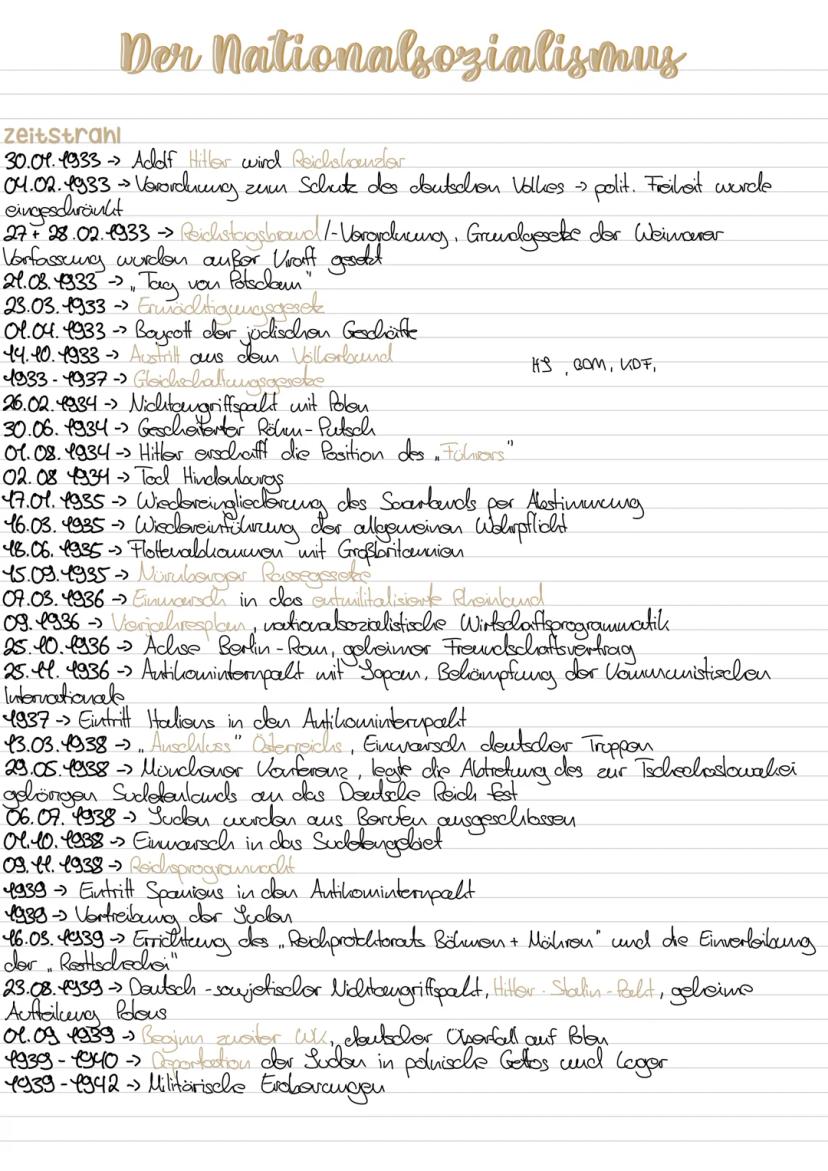 Der Nationalsozialismus
zeitstrahl
30.01.1933 → Adolf Hitler wird Reichskanzler
04.02.1933 → Verordnung zum Schutz des deutschen Volkes → polit. Freiheit wurde
eingeschränkt
27 + 28.02.1933 → Reichstagsbrand/-Verordnung, Grundgesetze der Weimarer
Verfassung wurden außer Kraft gesetzt
21.03.1933 → „Tag von Potsdam"
23.03.1933 → Ermächtigungsgesetz
01.04.1933 → Boycott der jüdischen Geschäfte
14.10.1933 → Austritt aus dem Völkerbund
HJ, BDM, KDF,
1933-1937 → Gleichschaltungsgesetze
26.02.1934 → Nichtangriffspakt mit Polen
30.06.1934 → Gescheiterter Röhm-Putsch
01.08.1934 → Hitler erschafft die Position des „Führers"
02.08 1934 → Tod Hindenburgs
17.01.1935 → Wiedereingliederung des Saarlands per Abstimmung
16.03.1935 → Wiedereinführung der allgemeinen Wehrpflicht
18.06.1935 → Flottenabkommen mit Großbritannien
15.09.1935 → Nürnberger Rassegesetze
07.03.1936 → Einmarsch in das entmilitalisierte Rheinland
09.1936 → Vierjahresplan, nationalsozialistische Wirtschaftsprogrammatik
25.10.1936 → Achse Berlin-Rom, geheimer Freundschaftsvertrag
25.11.1936 → Antikominternpakt mit Japan, Bekämpfung der Kommunistischen
Internationale
1937 → Eintritt Italiens in den Antikominternpakt
13.03.1938 → „Anschluss" Österreichs, Einmarsch deutscher Truppen
29.05.1938 → Münchener Konferenz, legte die Abtretung des zur Tschechoslowakei
gehörigen Sudetenlands an das Deutsche Reich fest
06.07.1938 → Juden wurden aus Berufen ausgeschlossen
01.10.1938 → Einmarsch in das Sudetengebiet
09.11.1938 → Reichsprogromnacht
1939 → Eintritt Spaniens in den Antikominternpakt
1939 → Vertreibung der Juden
16.03.1939 → Errichtung des „Reichprotektorats Böhmen + Mähren" und die Einverleibung
der „Resttschechei"
23.08.1939 → Deutsch-sowjetischer Nichtangriffspakt, Hitler-Stalin-Pakt, geheime
Aufteilung Polens
01.09 1939 → Beginn zweiter WK, deutscher Überfall auf Polen
1939-1940 → Deportation der Juden in polnische Gettos und Lager
1939-1942 → Militärische Eroberungen